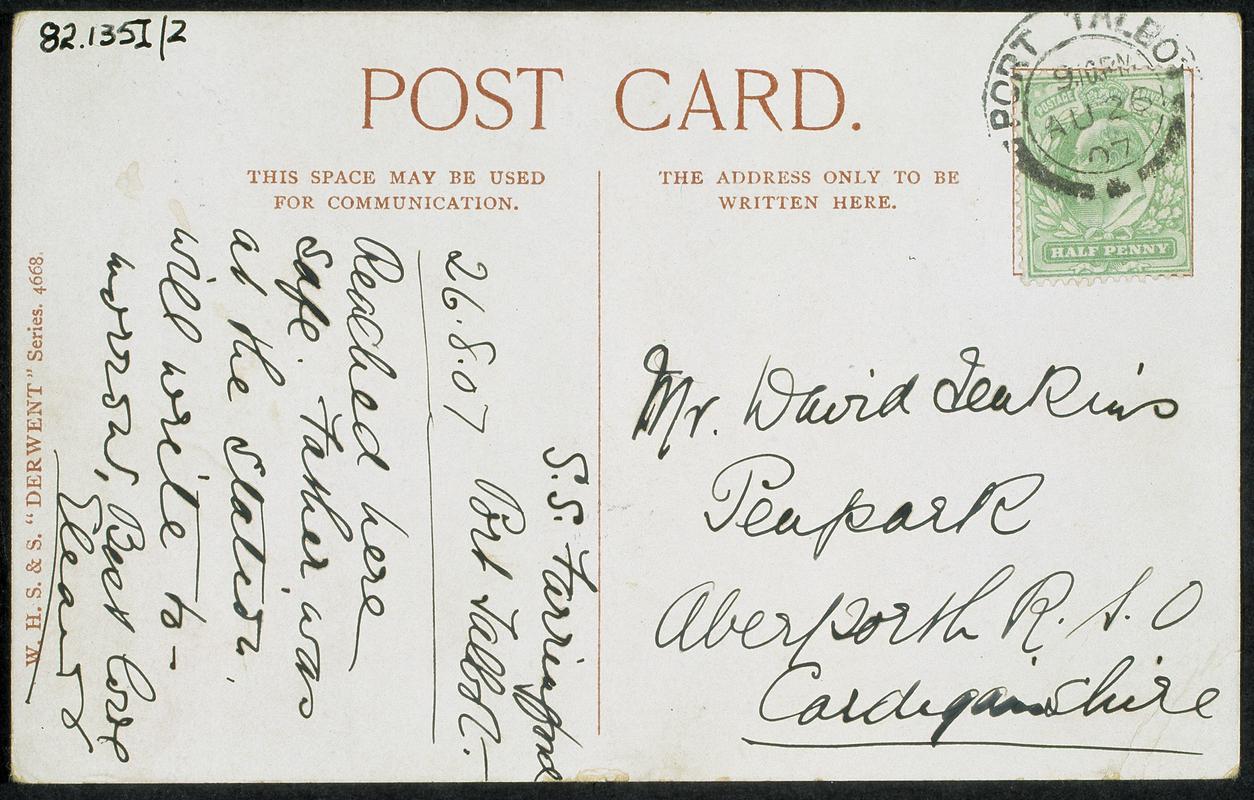 82.135I/2
POST CARD.
THIS SPACE MAY BE USED
FOR COMMUNICATION.
THE ADDRESS ONLY TO BE
WRITTEN HERE.
PORT TALBOT
AU 26
07
HALF PENNY
S.S. Farringford
26.8.07 Port Talbot.
Reached here
safe. Father was
at the station.
will write to-
morrow, Best love
Mr. David Jenkins
Penpark
Aberporth R.S.O
Cardiganshire
W. H. S. & S. "DERWENT" Series. 4668.